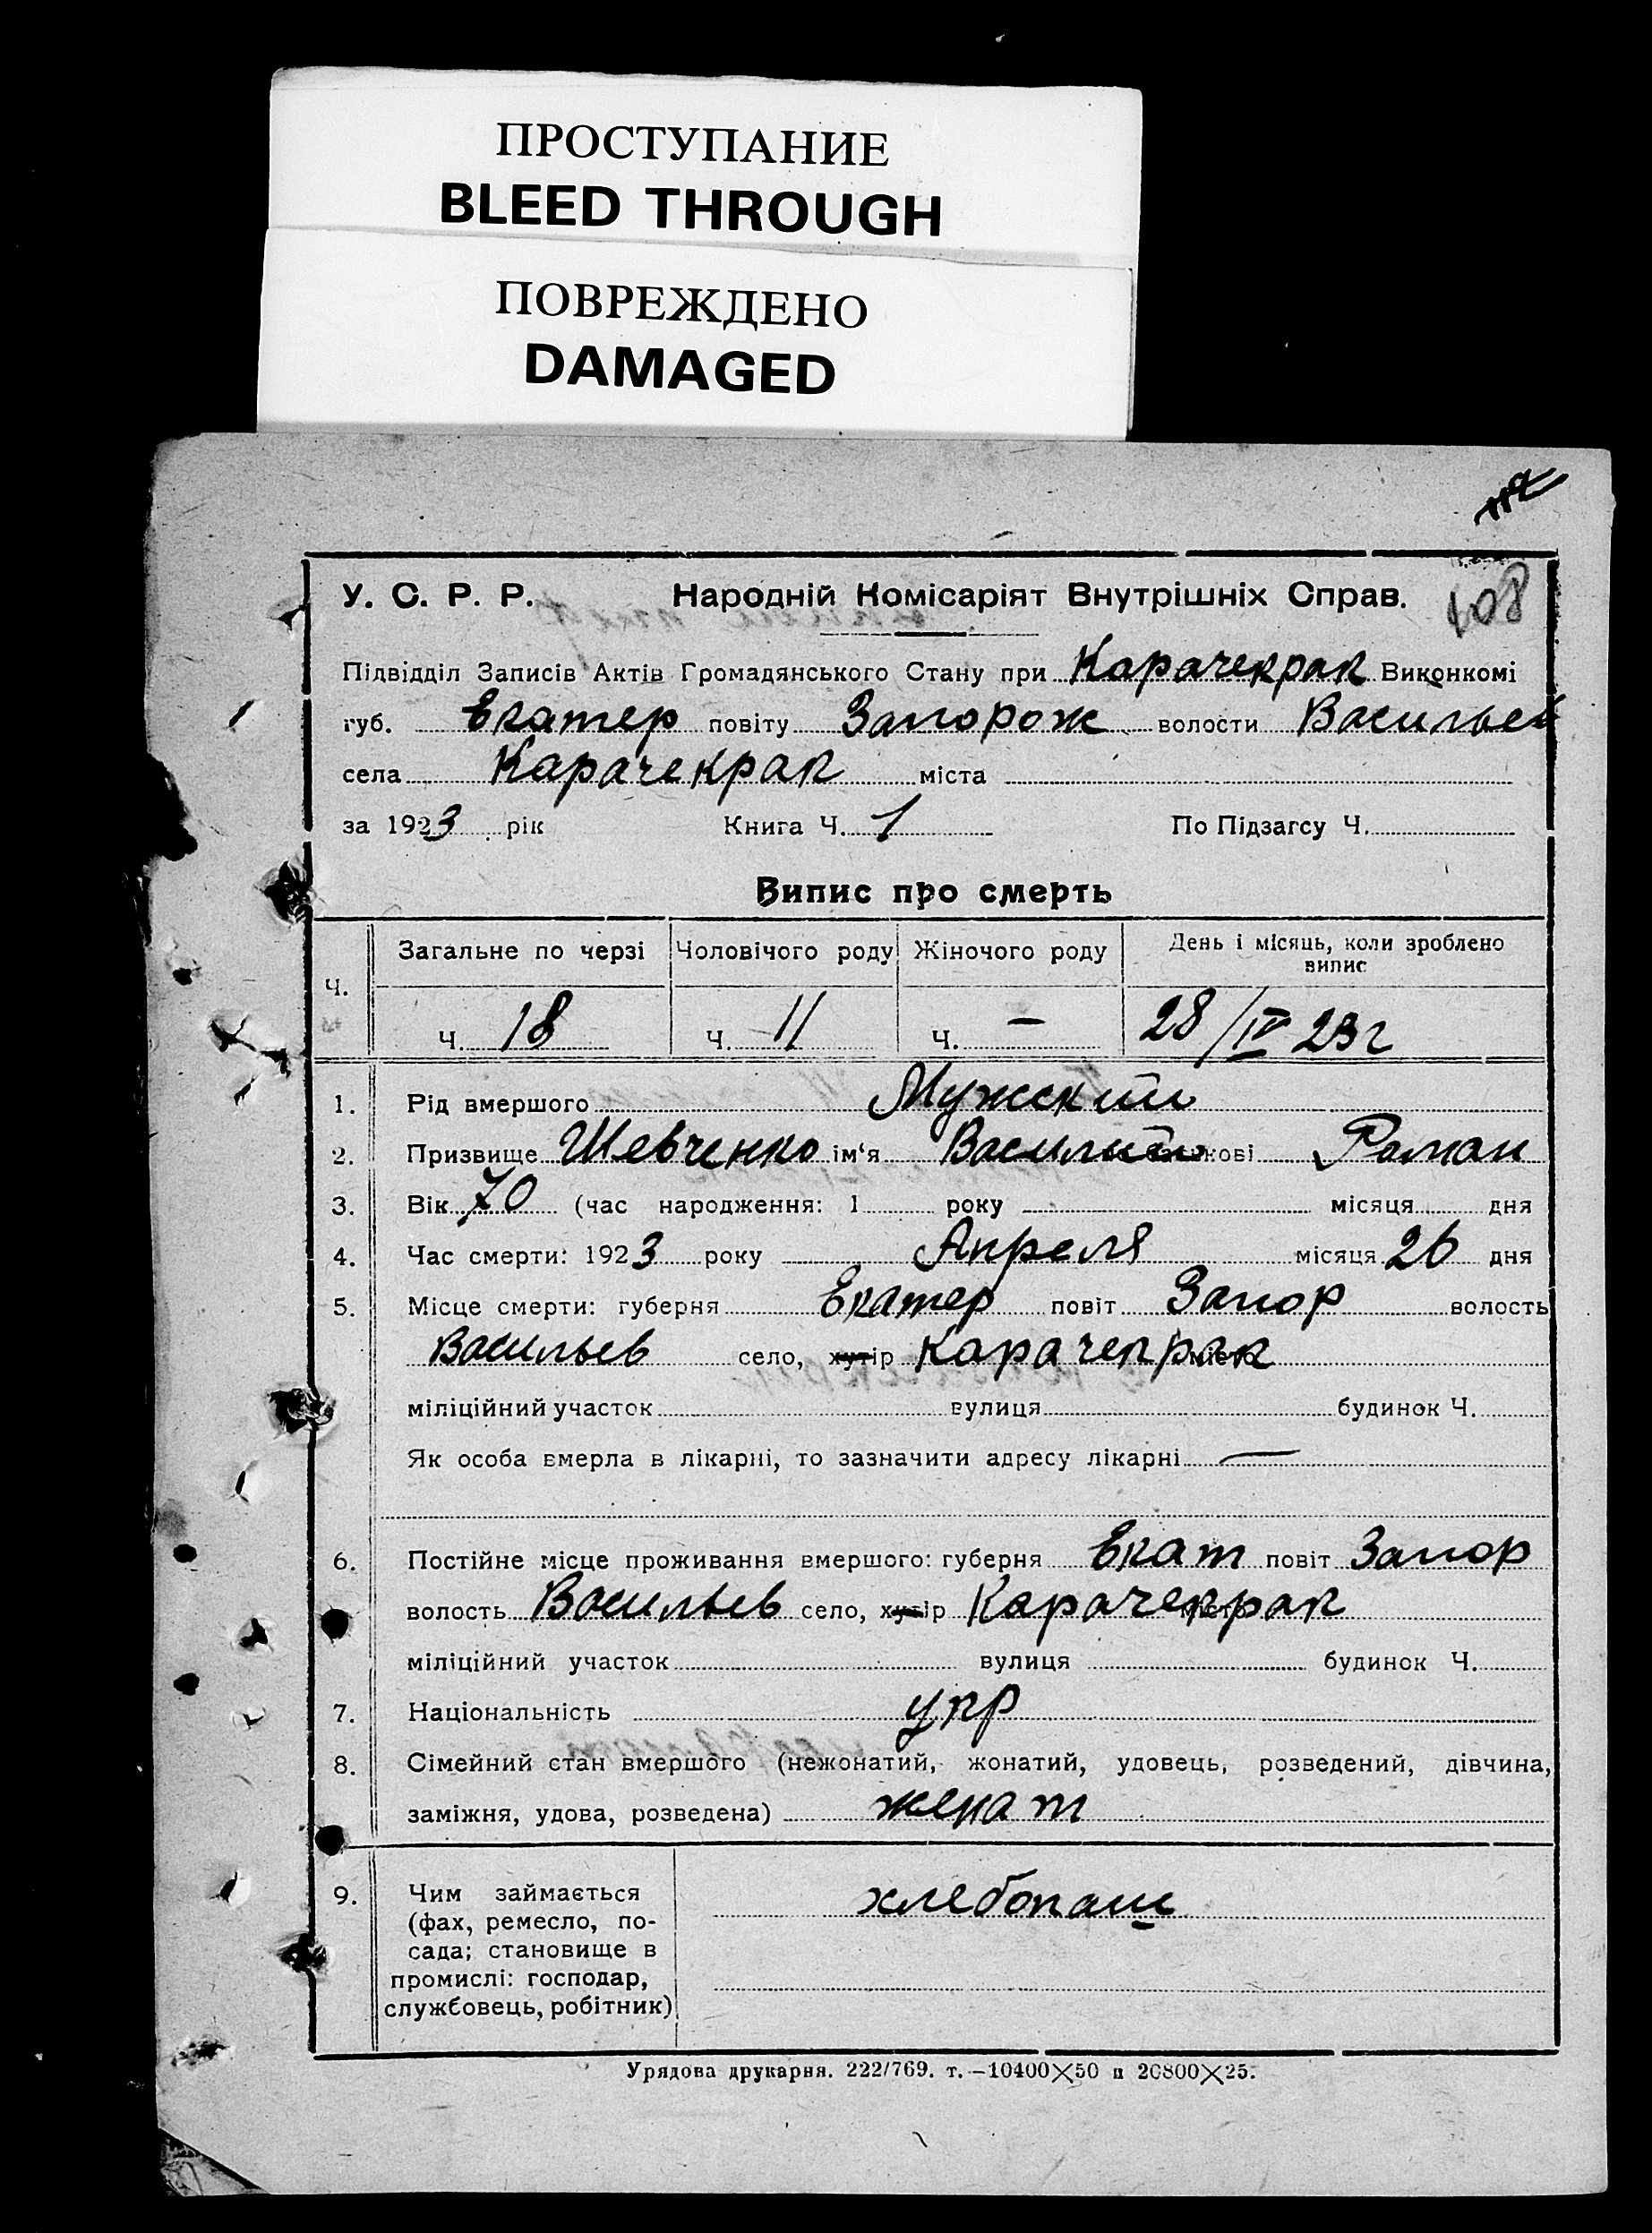 ПРОСТУПАНИЕ
BLEED THROUGH
ПОВРЕЖДЕНО
DAMAGED
У. С. Р. Р. Народній Комісаріят Внутрішніх Справ. 108
Підвідділ Записів Актів Громадянського Стану при Карачекрак Виконкомі
губ. Екатер повіту Запорож волости Васильев
села Карачекрак міста
за 1923 рік Книга Ч. 1 По Підзагсу Ч.
Випис про смерть
Ч. Загальне по черзі Чоловічого роду Жіночого роду День і місяць, коли зроблено
випис
Ч. 18 Ч. 11 Ч. – 28/IV 23г
1. Рід вмершого Мужский
2. Призвище Шевченко ім‘я Василий Роман
3. Вік 70 (час народження: 1 року місяця дня
4. Час смерти: 1923 року Апреля місяця 26 дня
5. Місце смерти: губерня Екатер повіт Запор волость
Васильев село, хутір Карачекрак місто
міліційний участок вулиця будинок Ч.
Як особа вмерла в лікарні, то зазначити адресу лікарні —
6. Постійне місце проживання вмершого: губерня Екат повіт Запор
волость Васильев село, хутір Карачекрак місто
міліційний участок вулиця будинок Ч.
7. Національність укр
8. Сімейний стан вмершого (нежонатий, жонатий, удовець, розведений, дівчина,
заміжня, удова, розведена) женат
9. Чим займається хлебопаш
(фах, ремесло, по-
сада; становище в
промислі: господар,
службовець, робітник)
Урядова друкарня. 222/769. т.—10400×50 п 20800×25.